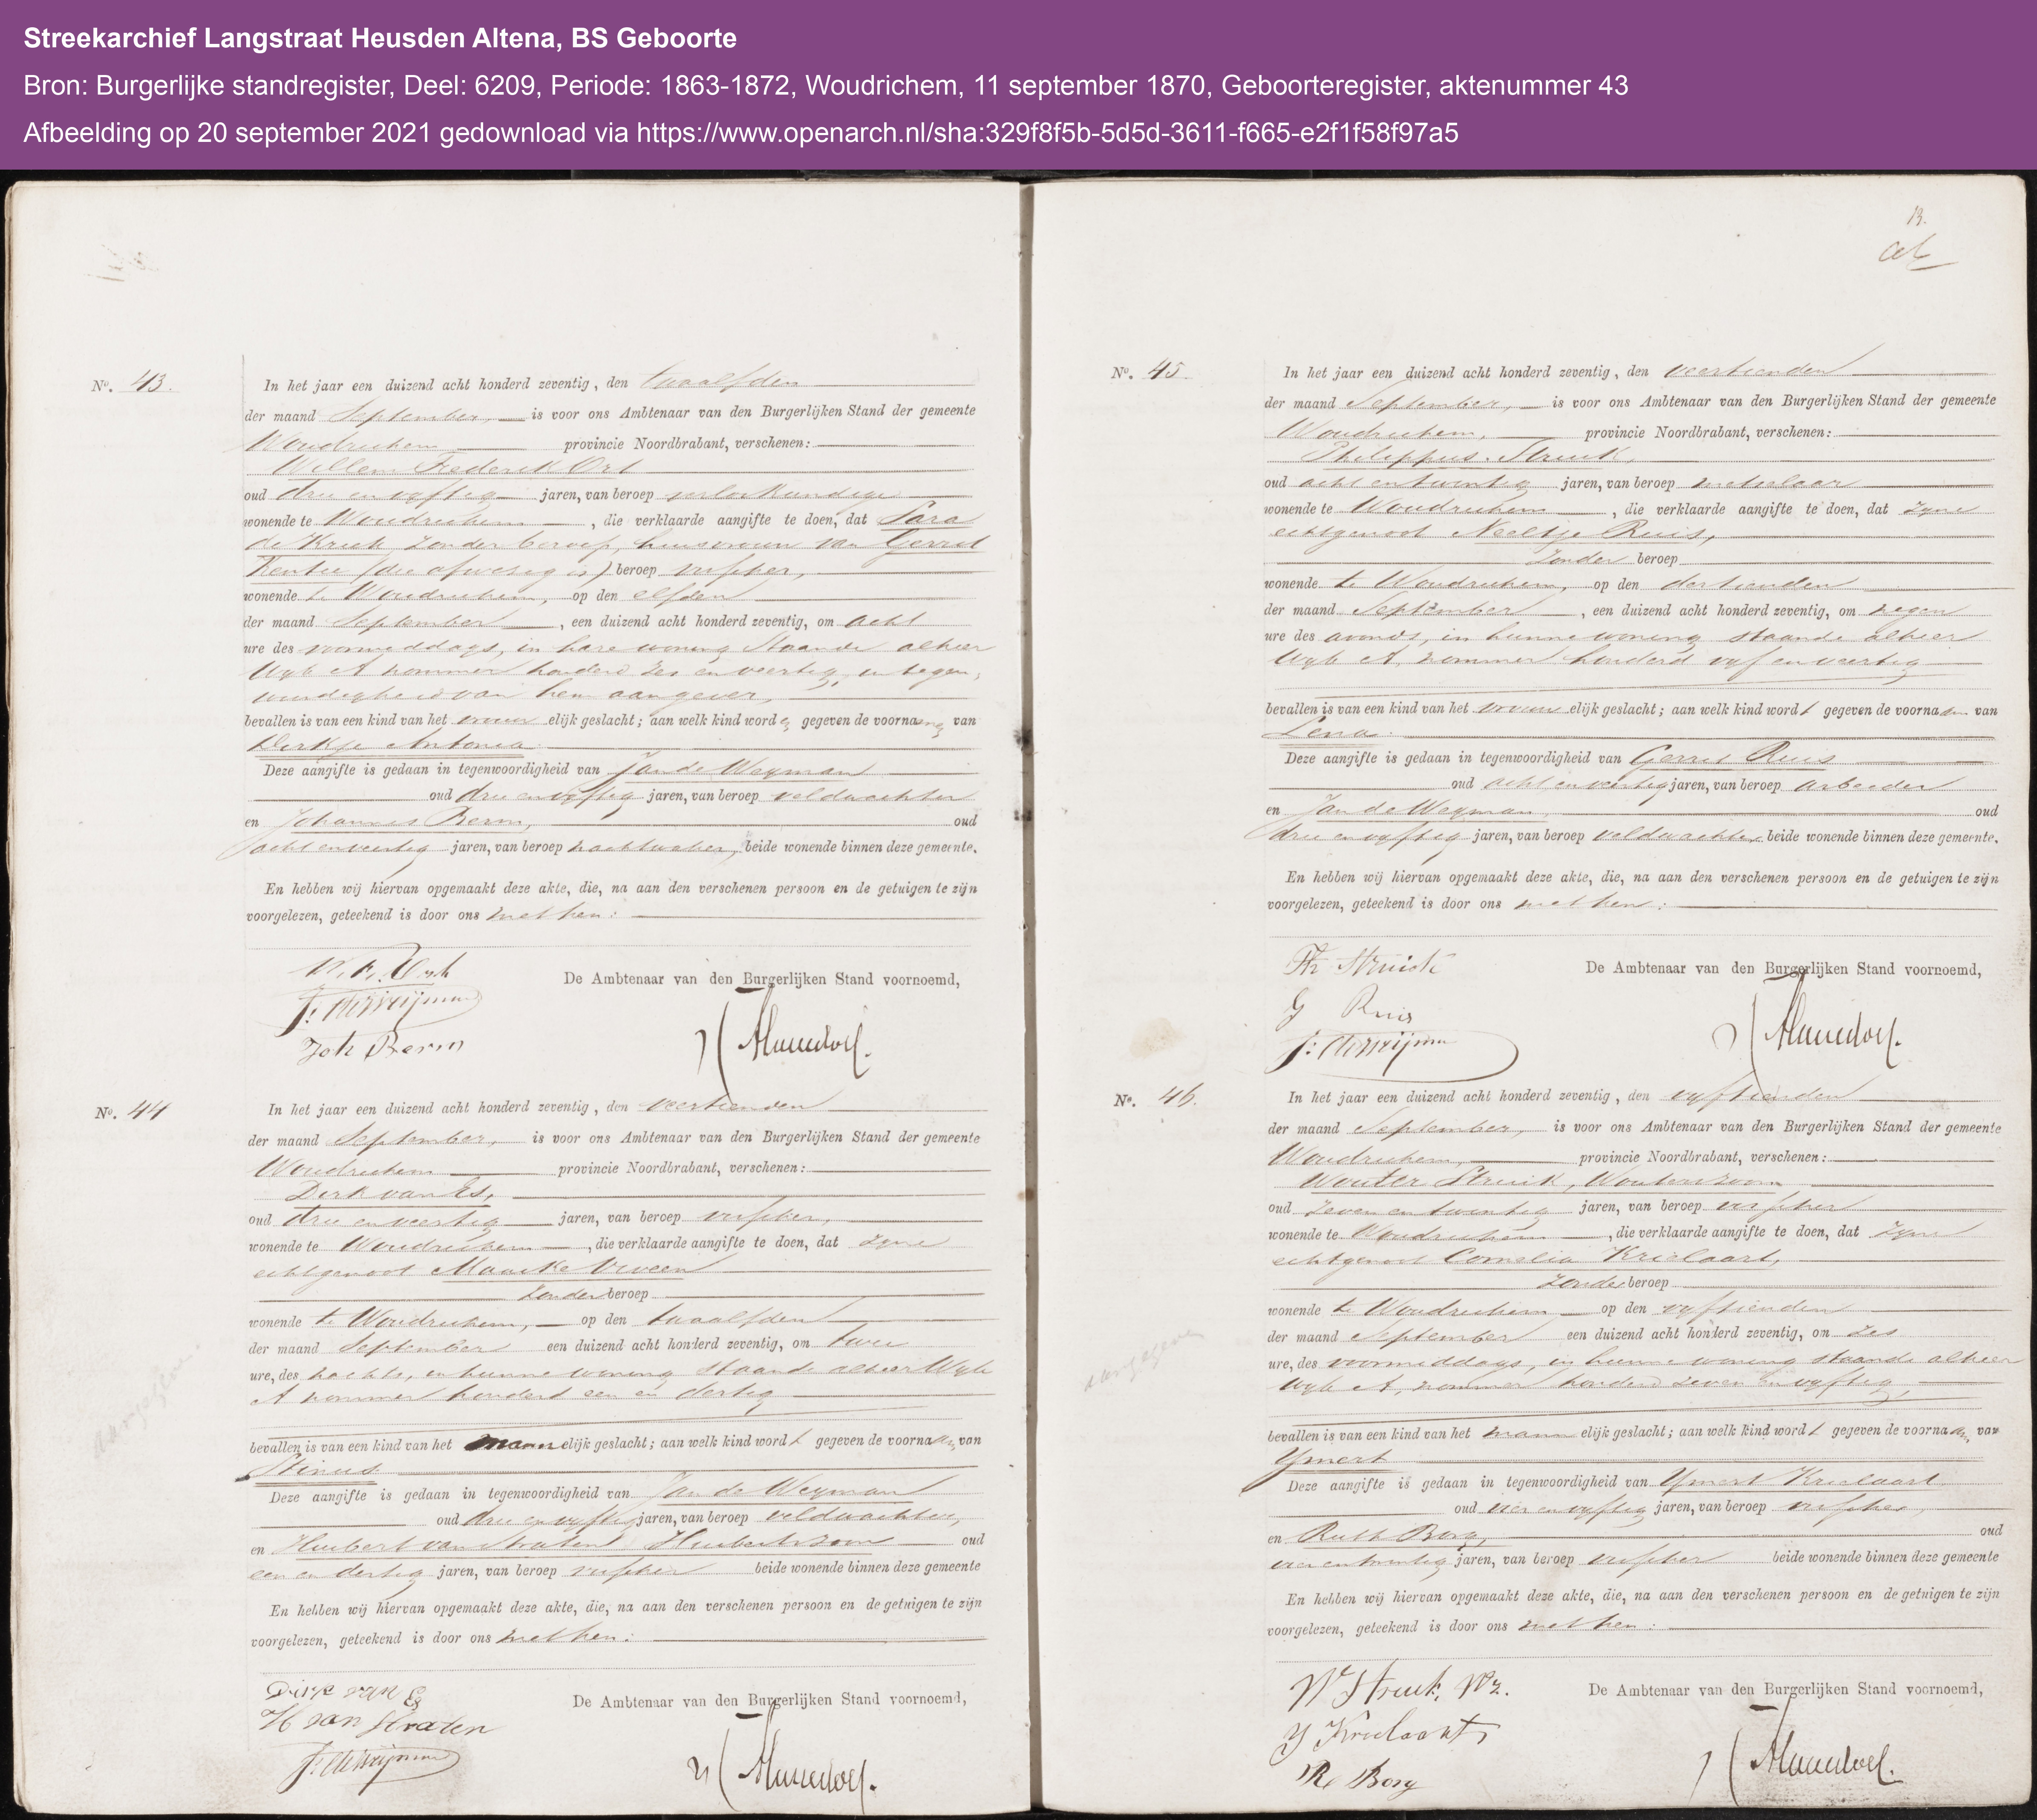 Streekarchief Langstraat Heusden Altena, BS Geboorte
Bron: Burgerlijke standregister, Deel: 6209, Periode: 1863-1872, Woudrichem, 11 september 1870, Geboorteregister, aktenummer 43
Afbeelding op 20 september 2021 gedownload via https://www.openarch.nl/sha:329f8f5b-5d5d-3611-f665-e2f1f58f97a5
No. 43.
In het jaar een duizend acht honderd zeventig, den twaalfden
der maand September, is voor ons Ambtenaar van den Burgerlijken Stand der gemeente
Woudrichem provincie Noordbrabant, verschenen:
Willem Frederik Ort
oud drie en vyftig jaren, van beroep verloskundige
wonende te Woudrichem, die verklaarde aangifte te doen, dat Sara
de Kreek zonder beroep, huisvrouw van Gerrit
(die afwezig is) beroep visscher,
wonende te Woudrichem, op den elfden
der maand September, een duizend acht honderd zeventig, om acht
ure des voormiddags, in hare woning staande alhier
Wyk A nommer honderd zes en veertig, in tegen,
woordigheid van hem aangever,
bevallen is van een kind van het vrouwelijk geslacht; aan welk kind word gegeven de voorna van
Dirkje Antonia.
Deze aangifte is gedaan in tegenwoordigheid van Jan de Weyman
oud drie en vyftig jaren, van beroep veldwachter
en Johannes Berm, oud
acht en veertig jaren, van beroep nachtwaker, beide wonende binnen deze gemeente.
En hebben wij hiervan opgemaakt deze akte, die, na aan den verschenen persoon en de getuigen te zijn
voorgelezen, geteekend is door ons met hen:
W. F. Ort
De Ambtenaar van den Burgerlijken Stand voornoemd,
Joh Berm
No. 44
In het jaar een duizend acht honderd zeventig, den veertienden
der maand September, is voor ons Ambtenaar van den Burgerlijken Stand der gemeente
Woudrichem provincie Noordbrabant, verschenen:
Dirk van Es,
oud drie en veertig jaren, van beroep visscher,
wonende te Woudrichem, die verklaarde aangifte te doen, dat zyne
echtgenoot Maaike Viveen
zonder beroep
wonende te Woudrichem, op den twaalfden
der maand September een duizend acht honderd zeventig, om twee
ure, des nachts, in hunne woning staande alhier Wyk
A nommer honderd een en dertig
bevallen is van een kind van het mannelijk geslacht; aan welk kind wordt gegeven de voornaam, van
Stinus
Deze aangifte is gedaan in tegenwoordigheid van Jan de Weyman
oud drie en vyftig jaren, van beroep veldwachter,
en Huibert van Straten Huibertszoon oud
een en dertig jaren, van beroep visscher beide wonende binnen deze gemeente
En hebben wij hiervan opgemaakt deze akte, die, na aan den verschenen persoon en de getuigen te zijn
voorgelezen, geteekend is door ons met hen:
Dirk van Es
De Ambtenaar van den Burgerlijken Stand voornoemd,
H van Straten
aangegeven
13.
No. 45
In het jaar een duizend acht honderd zeventig, den veertienden
der maand September, is voor ons Ambtenaar van den Burgerlijken Stand der gemeente
Woudrichem, provincie Noordbrabant, verschenen:
Philippus Struik,
oud acht en twintig jaren, van beroep metselaar
wonende te Woudrichem, die verklaarde aangifte te doen, dat zyne
echtgenoot Neeltje Ruis,
zonder beroep
wonende te Woudrichem, op den dertienden
der maand September, een duizend acht honderd zeventig, om negen
ure des avonds, in hunne woning staande alhier
Wyk A, nommer honderd vyf en veertig
bevallen is van een kind van het vrouwelijk geslacht; aan welk kind wordt gegeven de voornaam van
Lena.
Deze aangifte is gedaan in tegenwoordigheid van Gerrit Ruis
oud acht en veertig jaren, van beroep arbeider
en Jan de Weyman oud
drie en vyftig jaren, van beroep veldwachter, beide wonende binnen deze gemeente.
En hebben wij hiervan opgemaakt deze akte, die, na aan den verschenen persoon en de getuigen te zijn
voorgelezen, geteekend is door ons met hen:
Ph Struik
De Ambtenaar van den Burgerlijken Stand voornoemd,
G Ruis
No. 46.
In het jaar een duizend acht honderd zeventig, den vyftienden
der maand September, is voor ons Ambtenaar van den Burgerlijken Stand der gemeente
Woudrichem, provincie Noordbrabant, verschenen:
Wouter Struik, Wouterszoon
oud zeven en twintig jaren, van beroep visscher
wonende te Woudrichem, die verklaarde aangifte te doen, dat zyne
echtgenoot Cornelia Krielaart,
zonder beroep
wonende te Woudrichem op den vyftienden
der maand September een duizend acht honderd zeventig, om zes
ure, des voormiddags, in hunne woning staande alhier
Wyk A, nommer honderd zeven en vyftig,
bevallen is van een kind van het mannelijk geslacht; aan welk kind wordt gegeven de voornaam, van
Ymert
Deze aangifte is gedaan in tegenwoordigheid van Ymert Krielaart
oud vier en vyftig jaren, van beroep visscher,
en Ruth Borg, oud
vier en twintig jaren, van beroep visscher beide wonende binnen deze gemeente
En hebben wij hiervan opgemaakt deze akte, die, na aan den verschenen persoon en de getuigen te zijn
voorgelezen, geteekend is door ons met hen:
W Struik, Wz.
De Ambtenaar van den Burgerlijken Stand voornoemd,
Y Krielaart
R Borg
aangegeven